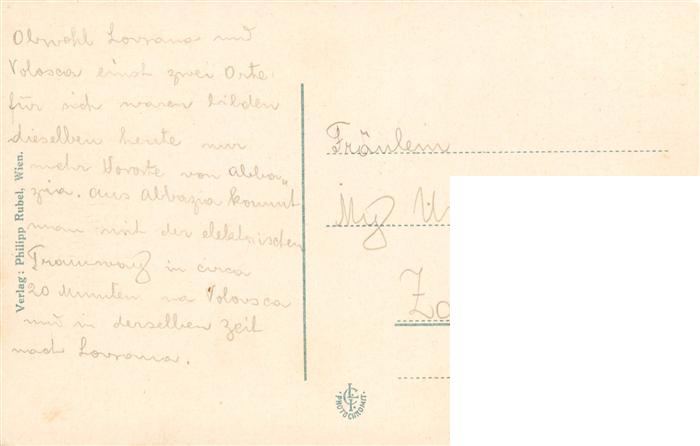 Obwohl Lovrana und
Volosca einst zwei Orte
für sich waren bilden
dieselben heute nur
mehr Vororte von Abba„
zia. Aus Abbazia kommt
man mit der elektrischen
Tramway in circa
20 Minuten na Volovsca
und in derselben zeit
nach Lovrana.
Verlag: Philipp Rubel, Wien.
Fräulein
PHOTOCHROMIE